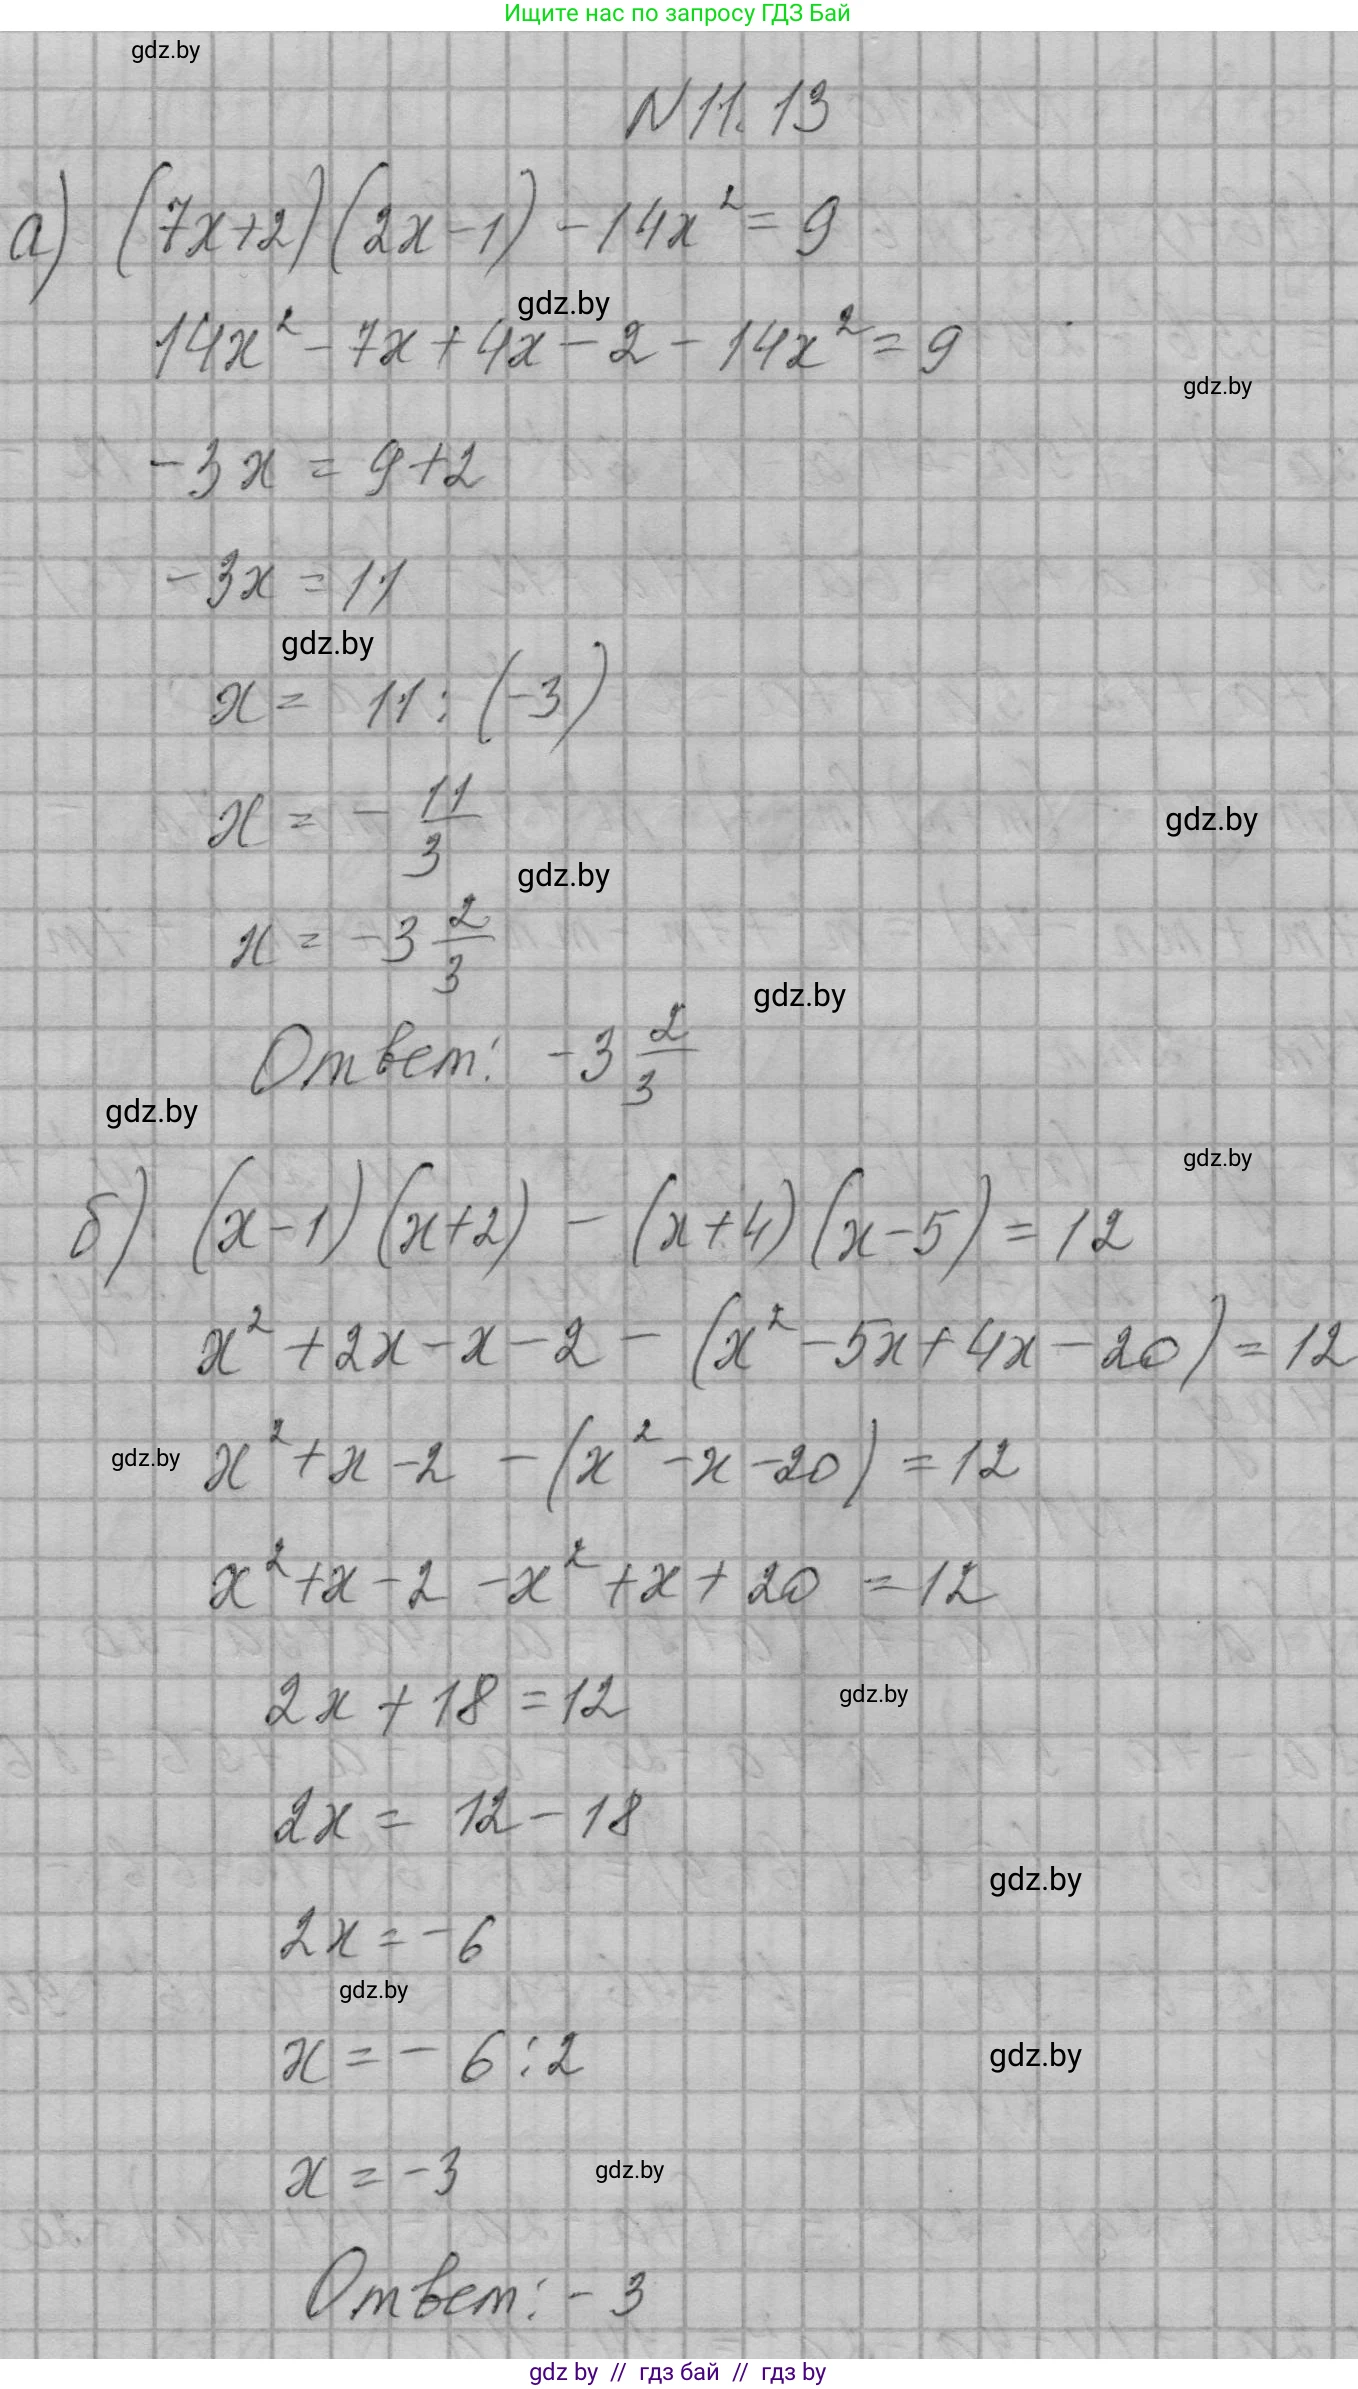 Ищите нас по запросу ГДЗ Бай
gdz.by
N 11.13
а) (7x+2)(2x-1) - 14x² = 9
gdz.by
14x² - 7x + 4x - 2 - 14x² = 9
gdz.by
-3x = 9+2
-3x = 11
gdz.by
x = 11 : (-3)
x = - 11/3
gdz.by
gdz.by
x = -3 2/3
gdz.by
Ответ: -3 2/3
gdz.by
gdz.by
б) (x-1)(x+2) - (x+4)(x-5) = 12
x² + 2x - x - 2 - (x² - 5x + 4x - 20) = 12
gdz.by
x² + x - 2 - (x² - x - 20) = 12
x² + x - 2 - x² + x + 20 = 12
gdz.by
2x + 18 = 12
2x = 12 - 18
gdz.by
2x = -6
gdz.by
x = - 6 : 2
gdz.by
x = -3
gdz.by
Ответ: - 3
gdz by // гдз бай // гдз by